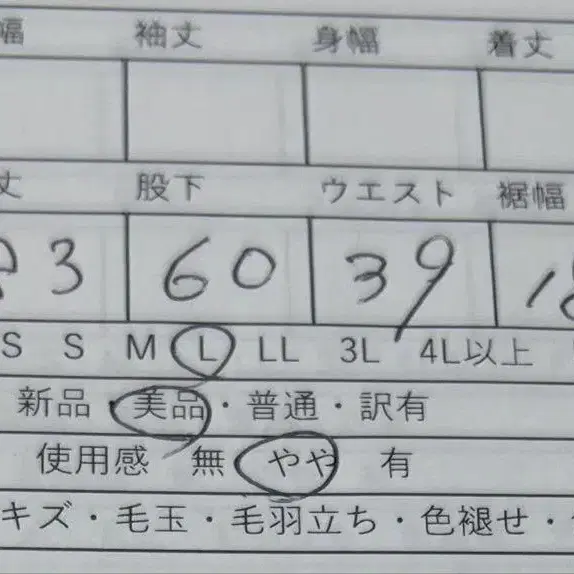 幅 袖丈 身幅 着丈
丈 股下 ウエスト 裾幅
3 60 39
S S M L LL 3L 4L以上
新品・美品・普通・訳有
使用感 無 やや 有
キズ・毛玉・毛羽立ち・色褪せ・